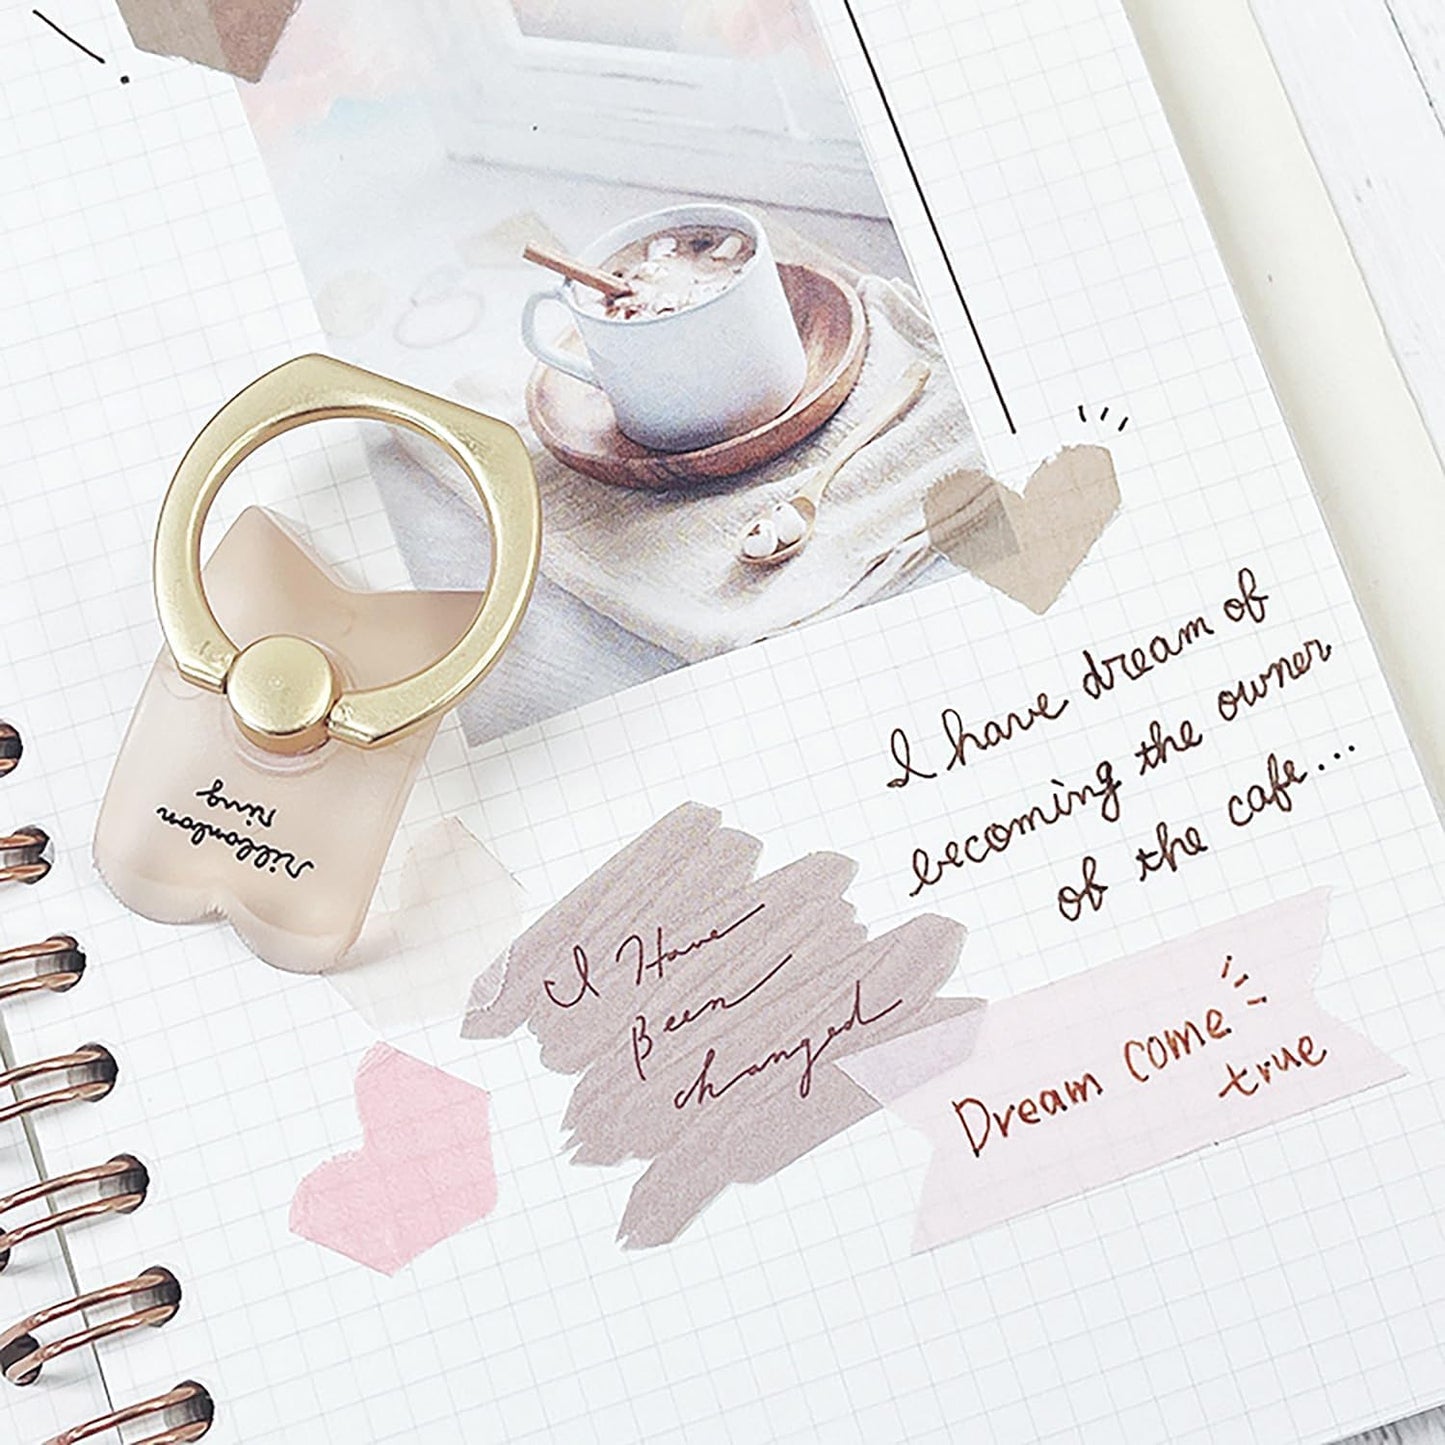 I have dream of
becoming the owner
of the cafe...
ribbonbon
ring
I Have
Been
changed
Dream come
true